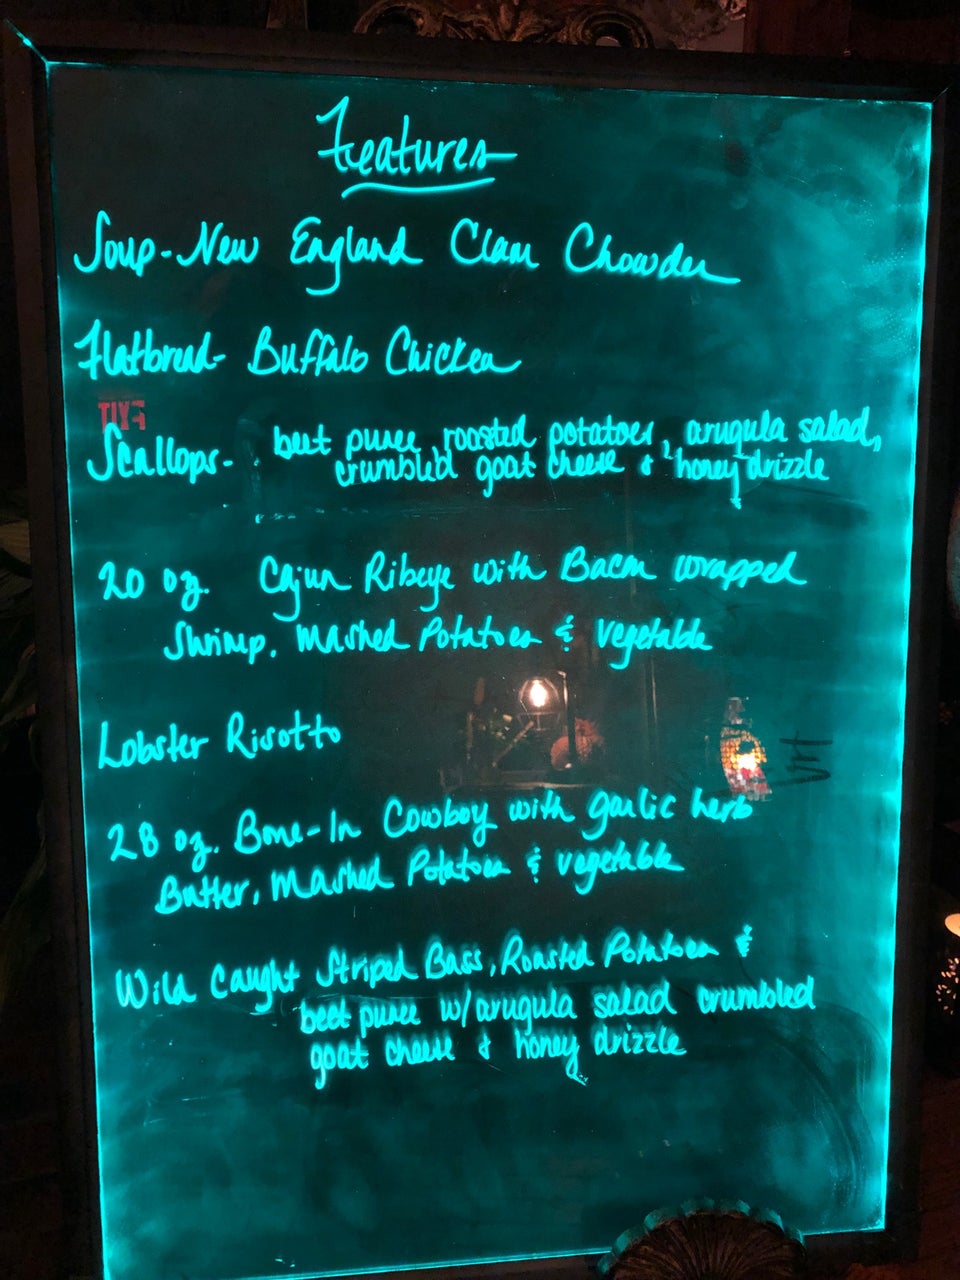 Features
Soup - New England Clam Chowder
Flatbread - Buffalo Chicken
EXIT
Scallops - beet puree, roasted potatoes, arugula salad,
crumbled goat cheese & honey drizzle
20 oz. Cajun Ribeye with Bacon wrapped
Shrimp, Mashed Potatoes & vegetable
Lobster Risotto
28 oz. Bone-In Cowboy with garlic herb
Butter, Mashed Potatoes & vegetable
Wild Caught Striped Bass, Roasted Potatoes &
beet puree w/arugula salad crumbled
goat cheese & honey drizzle